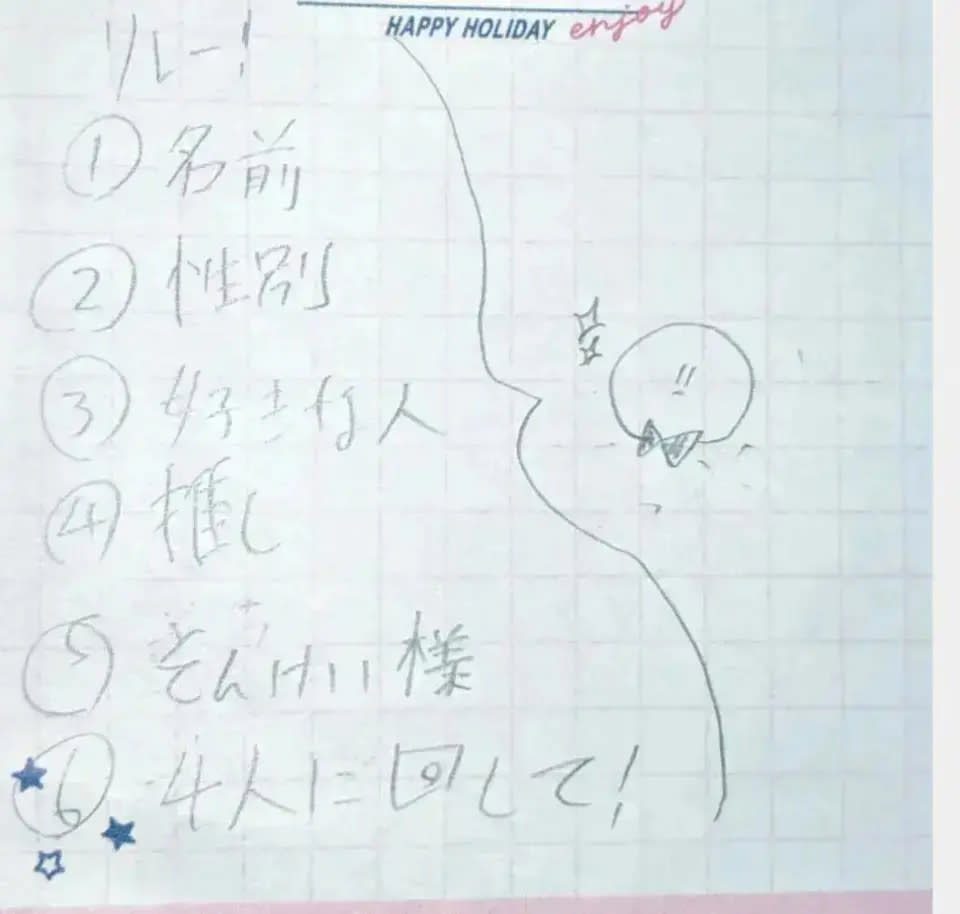 HAPPY HOLIDAY enjoy
リレー!
① 名前
② 性別
③ 好きな人
④ 推し
⑤ そんけい様
⑥ 4人に回して!